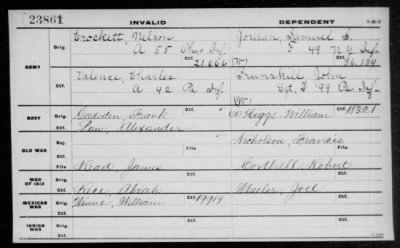 23861
INVALID
DEPENDENT
ARMY
Orig.
Crockett, Nelson
A 55 Ohio Inf.
21.666
Jordan, Samuel S.
F 49 N.Y. Inf.
Ctf.
Valence, Charles
A 42 Pa Inf.
John
99 Pa Inf.
NAVY
Orig.
Cadden, Frank
McHiggs William
Ctf.
18321
Ctf.
Law, Alexander
OLD WAR
Rej.
File
Nicholson, Francis
File
Ctf.
Read James
Cotthell, Robert
WAR OF 1812
Orig.
Ctf.
Rice, Abiah
Wheeler, Joel
MEXICAN WAR
Orig.
Winne, William
Ctf.
19919
Ctf.
INDIAN WAR
Orig.
Ctf.